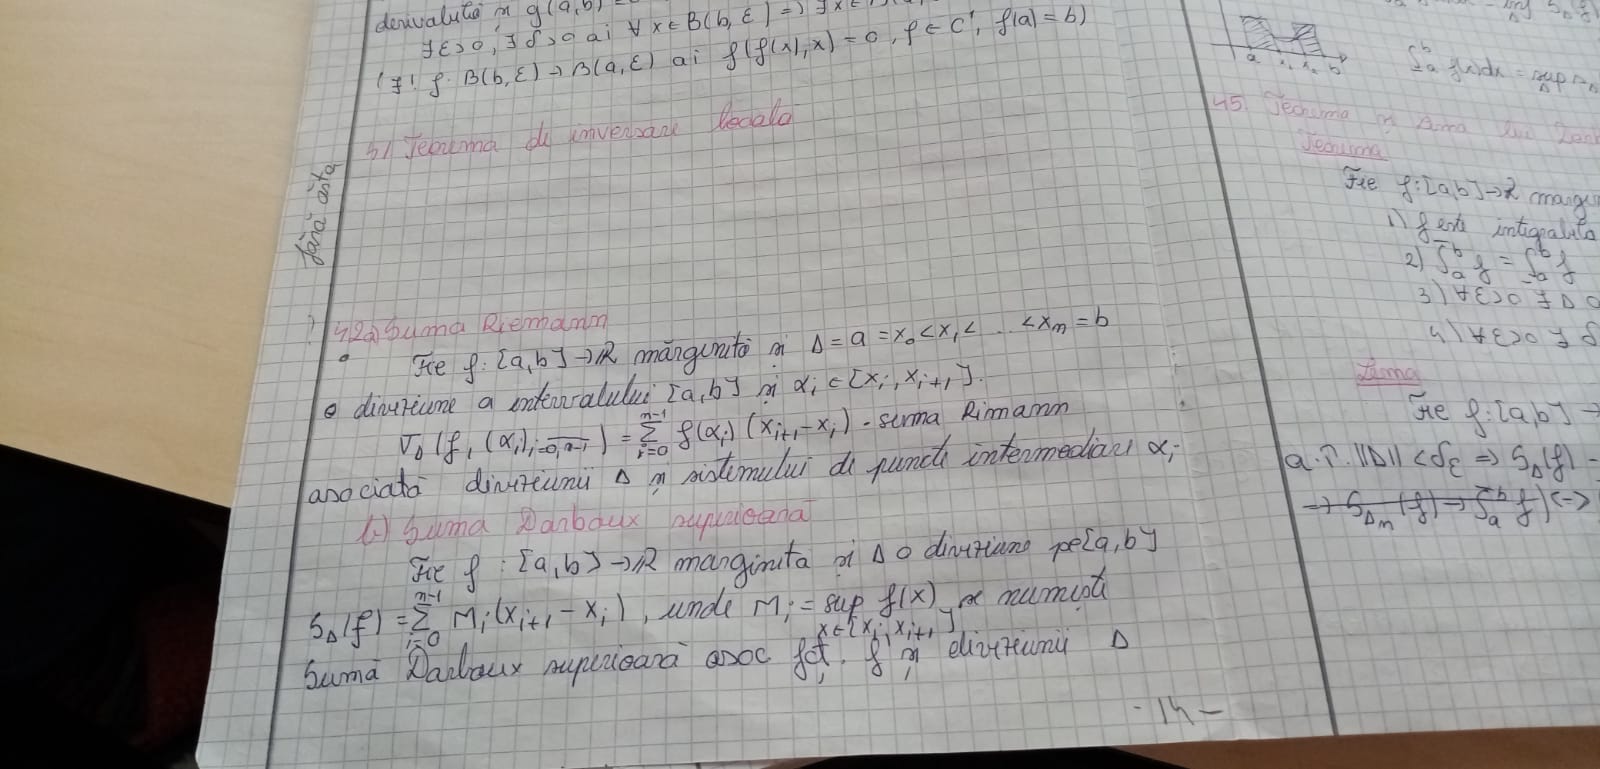 derivabilă și g(a,b) =
∃ε>0, ∃δ>0 aî ∀x∈B(b,ε) => ∃x∈
(∃! f: B(b,ε)→B(a,ε) aî f(f(x),x)=0, f∈C', f(a)=b)
Teorema de inversare locala
fără asta
? 42a) Suma Riemann
Fie f:[a,b]→R mărginită și Δ=a=x₀<x₁<...<xₙ=b
o diviziune a intervalului [a,b] și αᵢ∈[xᵢ,xᵢ₊₁].
∇Δ(f,(αᵢ)ᵢ₌₀,ₙ₋₁)=∑ᵢ₌₀ⁿ⁻¹ f(αᵢ)(xᵢ₊₁-xᵢ) - suma Rimann
asociată diviziunii Δ și sistemului de puncte intermediare αᵢ
b) Suma Darboux superioară
Fie f:[a,b]→R marginita și Δ o diviziune pe [a,b]
SΔ(f)=∑ᵢ₌₀ⁿ⁻¹ Mᵢ(xᵢ₊₁-xᵢ), unde Mᵢ=sup f(x) se numește
x∈[xᵢ,xᵢ₊₁]
Sumă Darboux superioară asoc fct. f și diviziunii Δ
-14-
a x₁ x₂ b
∫ₐᵇ f(x)dx = sup
45. Teorema și Lema lui
Teorema
Fie f:[a,b]→R
1) f este integrabilă
2) ∫ₐᵇ f = ∫ₐᵇ f
3) ∀ε>0 ∃Δ
4) ∀ε>0 ∃ δ
Lema
Fie f:[a,b]→
a.î. ||Δ||<δε => SΔ(f) -